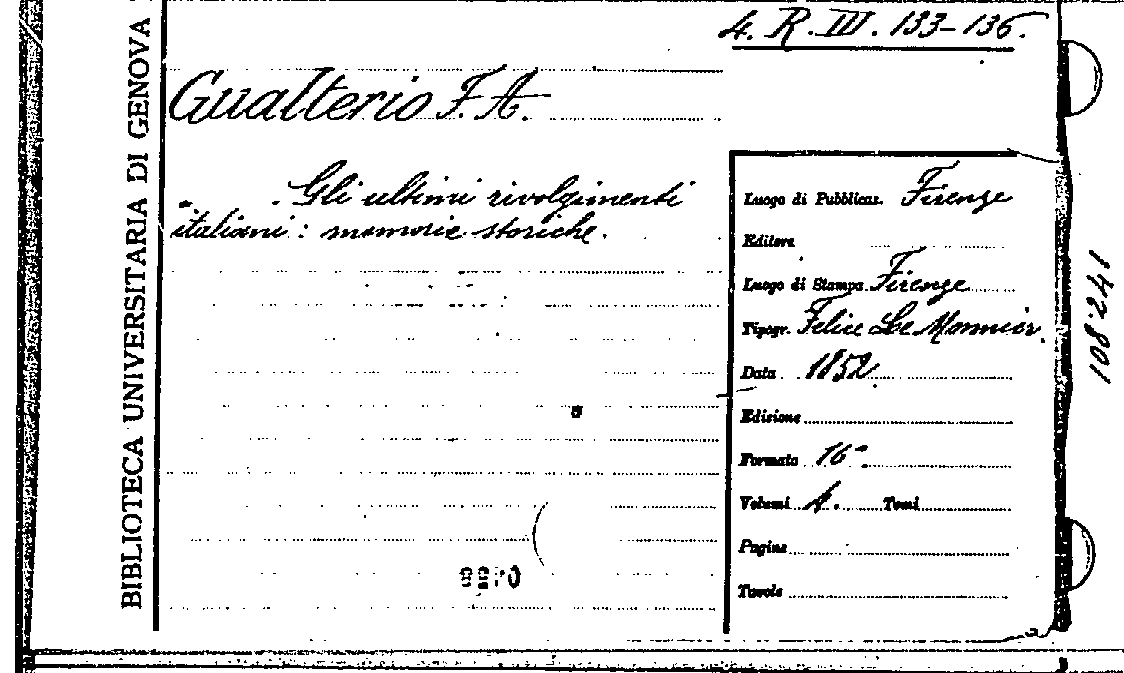 4. R. III. 133-136.
BIBLIOTECA UNIVERSITARIA DI GENOVA
Gualterio F. A.
Gli ultimi rivolgimenti
italiani: memorie storiche.
Luogo di Pubblicaz. Firenze
Editore
Luogo di Stampa Firenze
Tipogr. Felice Le Monnier.
Data 1852
Edizione
Formato 16°
Volumi 4. Tomi
Pagine
Tavole
108241